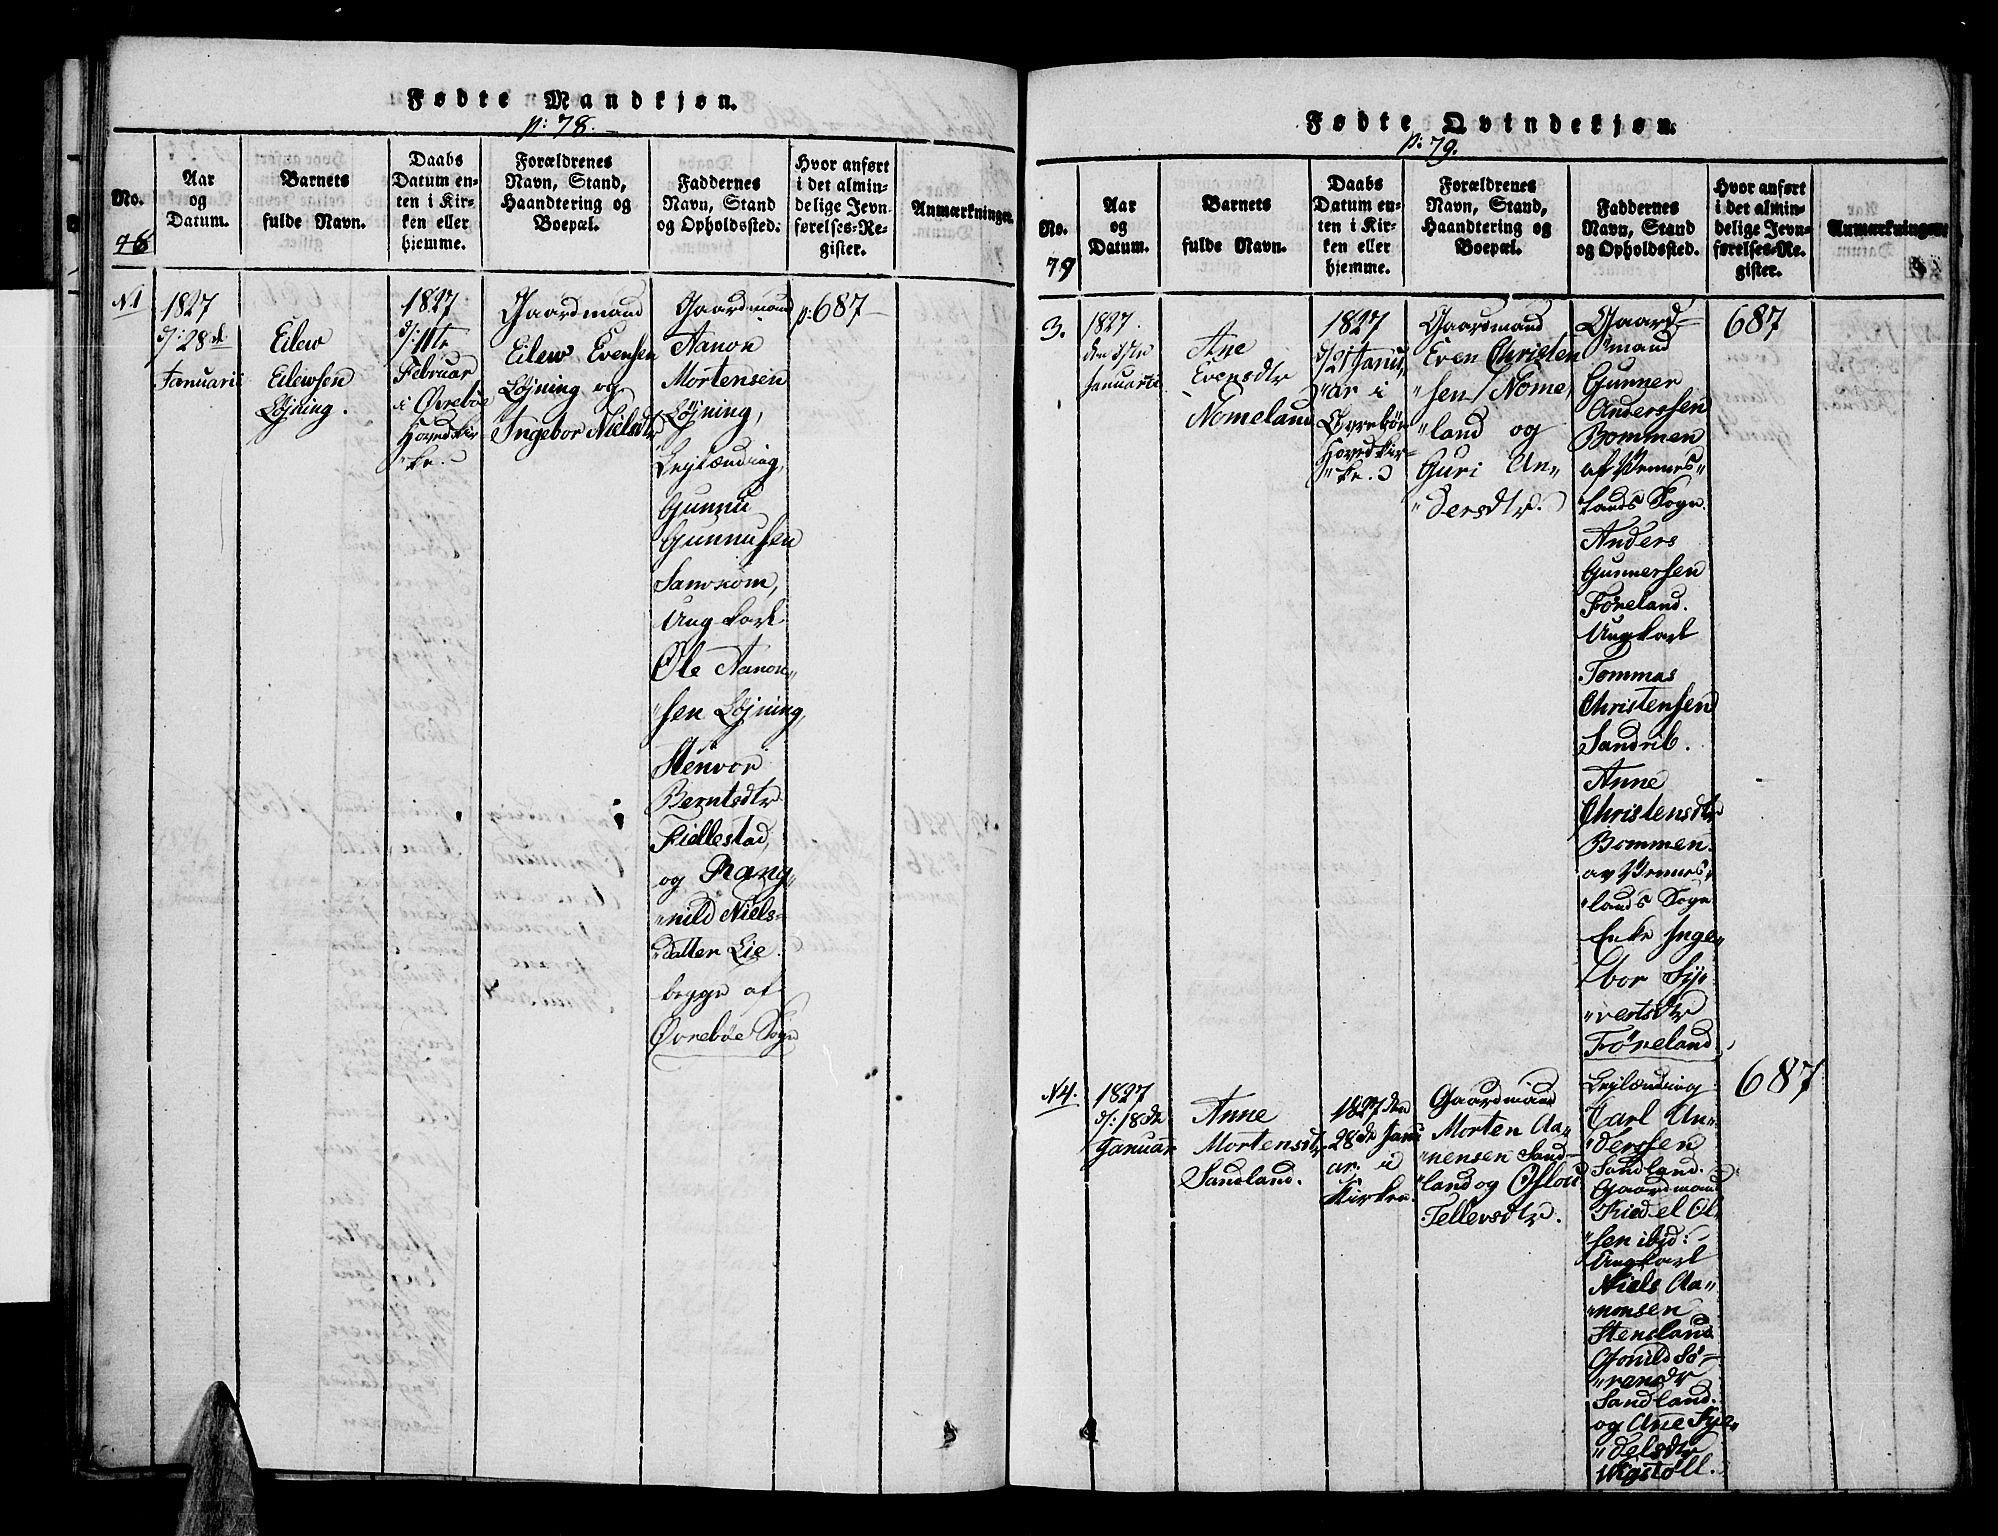 Fødte Mandkjøn.
p: 78.
No.
78
Aar
og
Datum.
Barnets
fulde Navn.
Daabs
Datum en-
ten i Kir-
ken eller
hjemme.
Forældrenes
Navn, Stand,
Haandtering og
Boepæl.
Faddernes
Navn, Stand
og Opholdssted.
Hvor anført
i det almin-
delige Jevn-
førelses-Re-
gister.
Anmærkninger.
N1
1827
d: 28de
Januarii
Eilew
Eilewsen
Løjning.
1827
d: 11te
Februar
i Øvrebøe
Hovedkir-
"ke.
Gaardmand
Eilew Evensen
Løjning og
Ingebor Nielsdtr
Gaardmand
Aanon
Mortensen
Løjning,
Lejlænding,
Gunnu
Gunnusen
Ungkarl
Ole Aanon-
"sen Løjning,
Stenvor
Berntsdtr
Fiellestad,
og Rang-
"nild Niels-
Datter Lie
begge af
Øvrebøe Sogn
p: 687
Fødte Qvindekjøn.
p. 79.
No.
79
Aar
og
Datum.
Barnets
fulde Navn.
Daabs
Datum en-
ten i Kir-
ken eller
hjemme.
Forældrenes
Navn, Stand,
Haandtering og
Boepæl.
Faddernes
Navn, Stand
og Opholdssted.
Hvor anført
i det almin-
delige Jevn-
førelses-Re-
gister.
Anmærkninger.
3.
1827.
den
Januarii
Ane
Evensdtr
Nomeland
1827
d/21 Janu-
"ar i
Øvrebøe
Hovedkir-
"ke.
Gaardmand
Even Christen
"sen Nome,
"land og
Guri An-
"dersdtr.
Gaard-
"mand
Gunner
Anderssen
Bommen
af Vennes-
lands Sogn.
Anders
Gunnersen
Føreland.
Ungkarl
Tommas
Christensen
Sandrib.
Anne
Christensdtr
Bommen.
av Vennes-
"lands Sogn
Enke Inge-
bor Sy-
"vertsdtr
Føreland.
687
N4.
1827
d: 18de
Januar
Anne
Mortensdtr
Sandland.
1827 den
28de Janu
ar. i
Kirken.
Gaardmand
Morten Aa-
"nensen Sand-
"land og Oslou
Tellevsdtr.
Lejlænding
Carl An-
"derssen
Sandland.
Gaardmand
Kiedel Ol-
"sen ibid:
Ungkarl
Niels Aa-
"nonsen
Stensland
Gonild Sø-
"rensdtr
Sandland.
og Ane Tje-
"delsdtr
687